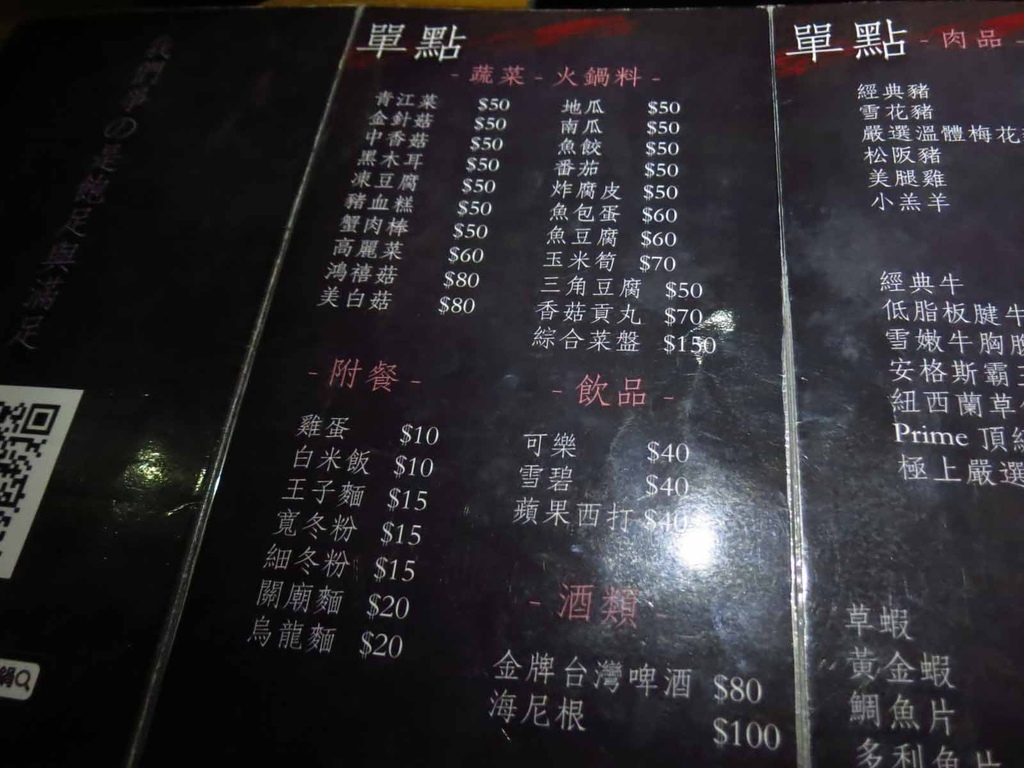 單點
- 蔬菜 - 火鍋料 -
青江菜 $50
金針菇 $50
中香菇 $50
黑木耳 $50
凍豆腐 $50
豬血糕 $50
蟹肉棒 $50
高麗菜 $60
鴻禧菇 $80
美白菇 $80
地瓜 $50
南瓜 $50
魚餃 $50
番茄 $50
炸腐皮 $50
魚包蛋 $60
魚豆腐 $60
玉米筍 $70
三角豆腐 $50
香菇貢丸 $70
綜合菜盤 $150
- 附餐 -
雞蛋 $10
白米飯 $10
王子麵 $15
寬冬粉 $15
細冬粉 $15
關廟麵 $20
烏龍麵 $20
- 飲品 -
可樂 $40
雪碧 $40
蘋果西打 $40
- 酒類 -
金牌台灣啤酒 $80
海尼根 $100
單點 - 肉品 -
經典豬
雪花豬
嚴選溫體梅花
松阪豬
美腿雞
小羔羊
經典牛
低脂板腱牛
雪嫩牛胸腹
安格斯霸
紐西蘭草
Prime 頂級
極上嚴選
草蝦
黃金蝦
鯛魚片
多利魚片
鍋